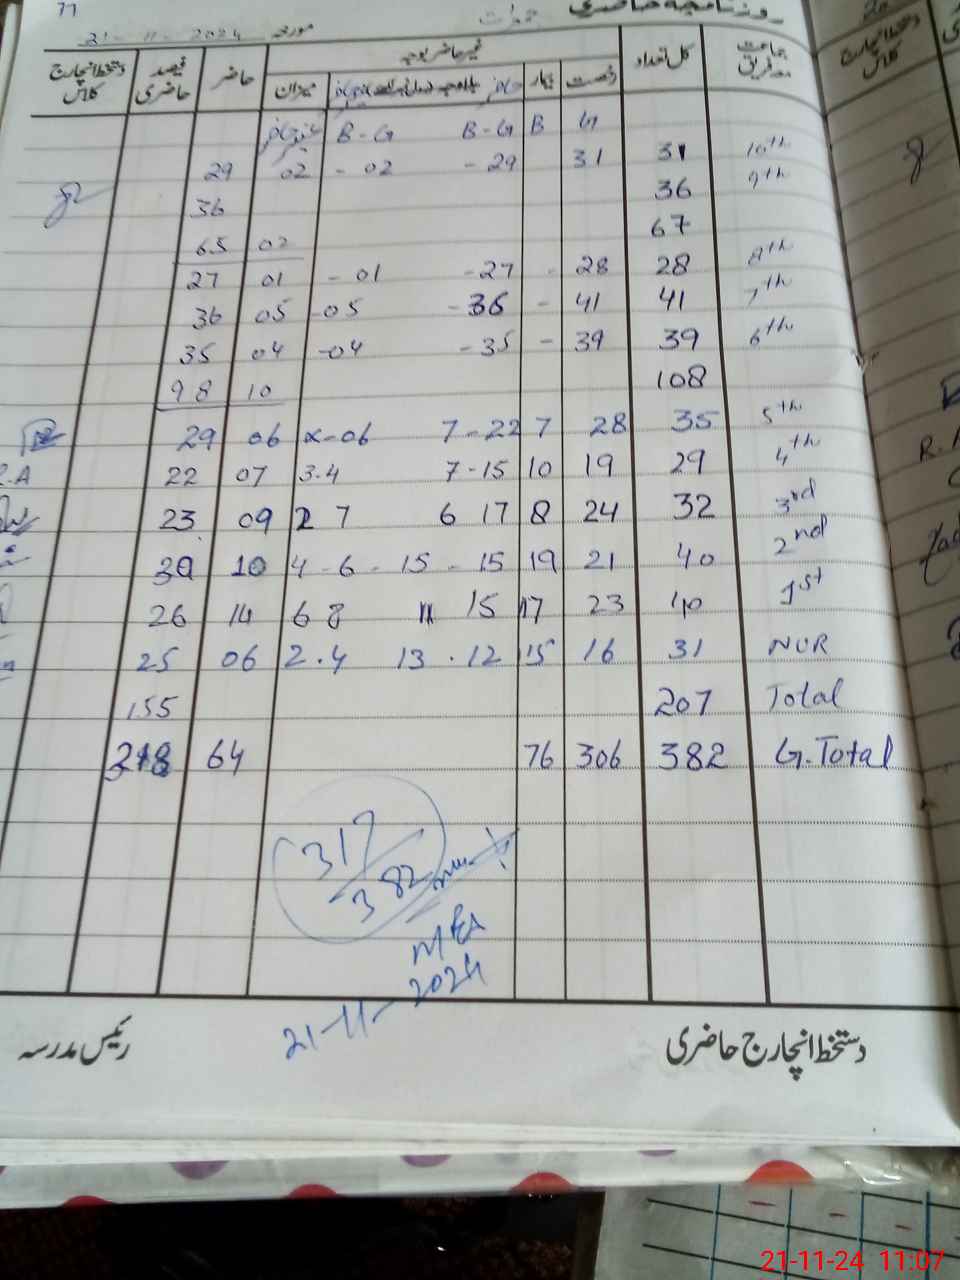 77
روزنامچہ حاضری
مورخہ 21-11-2024
جماعت معہ فریق کل تعداد غیر حاضر بوجہ حاضر فیصد حاضری دستخط انچارج کلاس
رخصت بیمار میزان
G B B-G B-G
10th 31 31 -29 - 02 02 29
9th 36 36
67 02 65
8th 28 28 - -27 -01 01 27
7th 41 41 - -36 -05 05 36
6th 39 39 - -35 -04 04 35
108 10 98
5th 35 28 7 7-22 x-06 06 29
4th 29 19 10 7-15 3.4 07 22
3rd 32 24 8 6 17 2 7 09 23
2nd 40 21 19 15-15 4-6- 10 30
1st 40 23 17 11 15 6 8 14 26
NUR 31 16 15 13.12 2.4 06 25
Total 207 155
G.Total 382 306 76 64 318
317
382
21-11-2024
دستخط انچارج حاضری
رئیس مدرسہ
دستخط انچارج کلاس
21-11-24 11:07